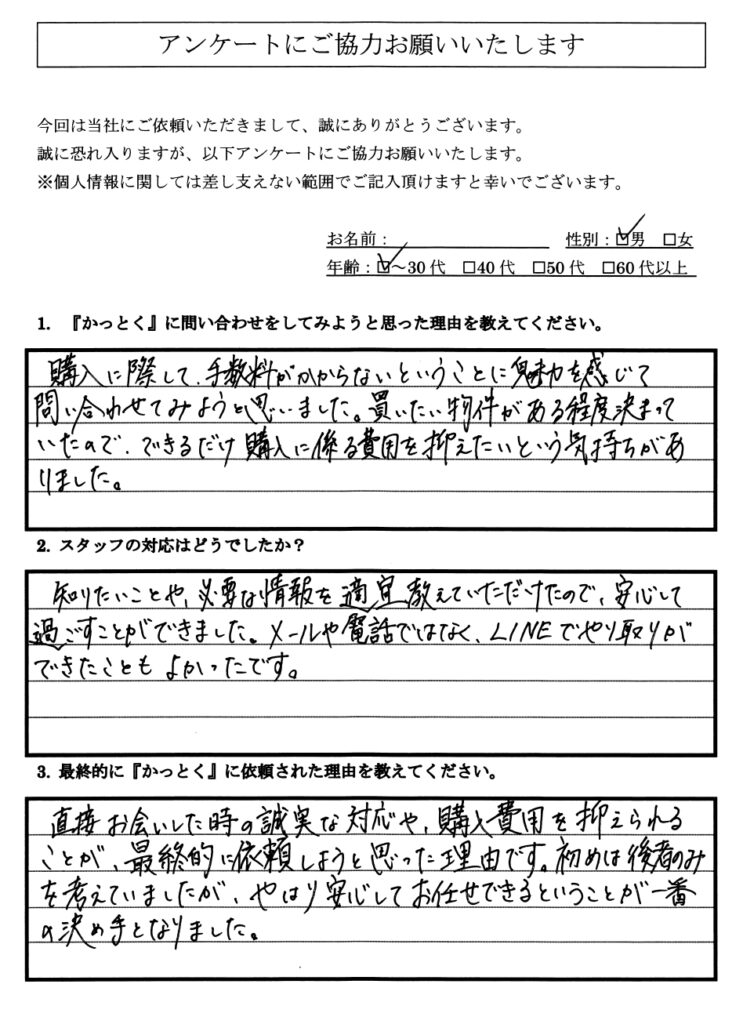 アンケートにご協力お願いいたします
今回は当社にご依頼いただきまして、誠にありがとうございます。
誠に恐れ入りますが、以下アンケートにご協力お願いいたします。
※個人情報に関しては差し支えない範囲でご記入頂けますと幸いでございます。
お名前： 性別：☑男 □女
年齢：☑～30代 □40代 □50代 □60代以上
1. 『かっとく』に問い合わせをしてみようと思った理由を教えてください。
購入に際して、手数料がかからないということに魅力を感じて
問い合わせてみようと思いました。買いたい物件がある程度決まって
いたので、できるだけ購入に係る費用を抑えたいという気持ちがあ
りました。
2. スタッフの対応はどうでしたか？
知りたいことや、必要な情報を適宜教えていただけたので、安心して
過ごすことができました。メールや電話ではなく、LINEでやり取りが
できたこともよかったです。
3. 最終的に『かっとく』に依頼された理由を教えてください。
直接お会いした時の誠実な対応や、購入費用を抑えられる
ことが、最終的に依頼しようと思った理由です。初めは後者のみ
を考えていましたが、やはり安心してお任せできるということが一番
の決め手となりました。